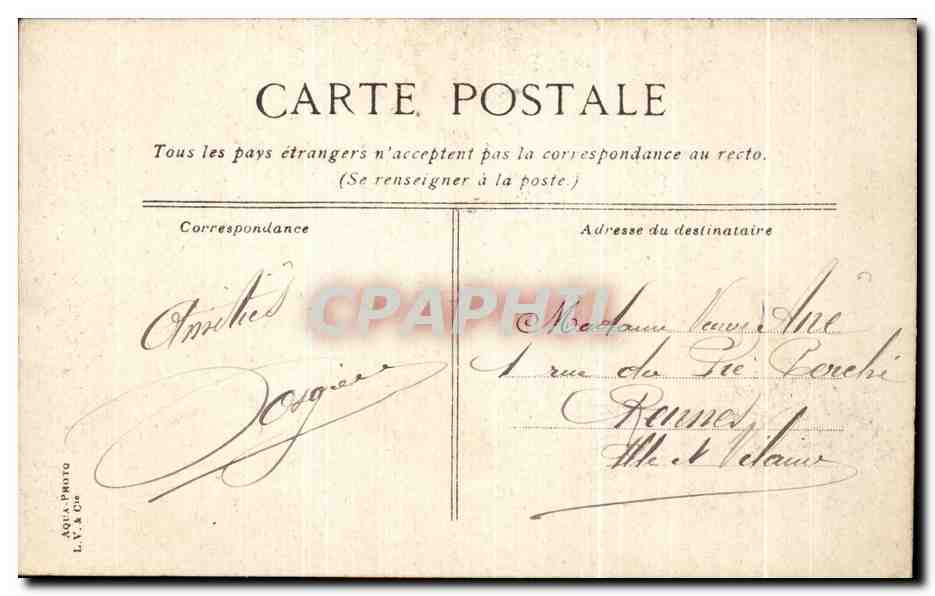 CARTE POSTALE
Tous les pays étrangers n'acceptent pas la correspondance au recto.
(Se renseigner à la poste.)
Correspondance
Adresse du destinataire
Amitiés
CPAPHIL
Madame Veuve Ané
1 rue du Pré Perché
Rennes
Ille et Vilaine
AQUA-PHOTO
L. V. & Cie